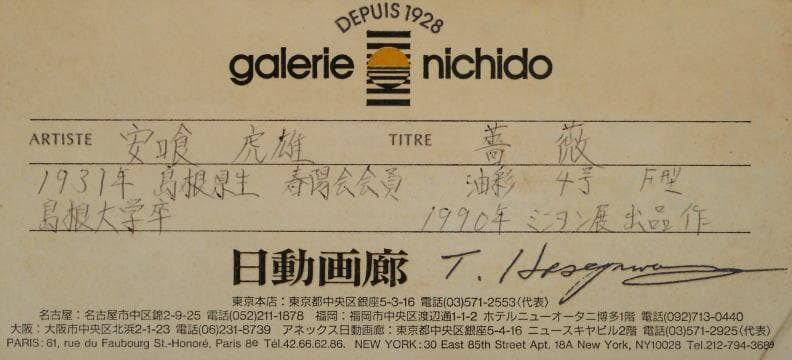 DEPUIS 1928
galerie nichido
ARTISTE 安喰 虎雄 TITRE 薔薇
1931年 島根県生 春陽会会員 油彩 4号 F型
島根大学卒 1990年 ミニヨン展 出品作
日動画廊 T. Hasegawa
東京本店：東京都中央区銀座5-3-16 電話(03)571-2553〈代表〉
名古屋：名古屋市中区錦2-9-25 電話(052)211-1878 福岡：福岡市中央区渡辺通1-1-2 ホテルニューオータニ博多1階 電話(092)713-0440
大阪：大阪市中央区北浜2-1-23 電話(06)231-8739 アネックス日動画廊：東京都中央区銀座5-4-16 ニュースキヤビル2階 電話(03)571-2925〈代表〉
PARIS: 61, rue du Faubourg St.-Honoré, Paris 8e Tél.42.66.62.86. NEW YORK: 30 East 85th Street Apt. 18A New York, NY10028 Tel.212-794-3689